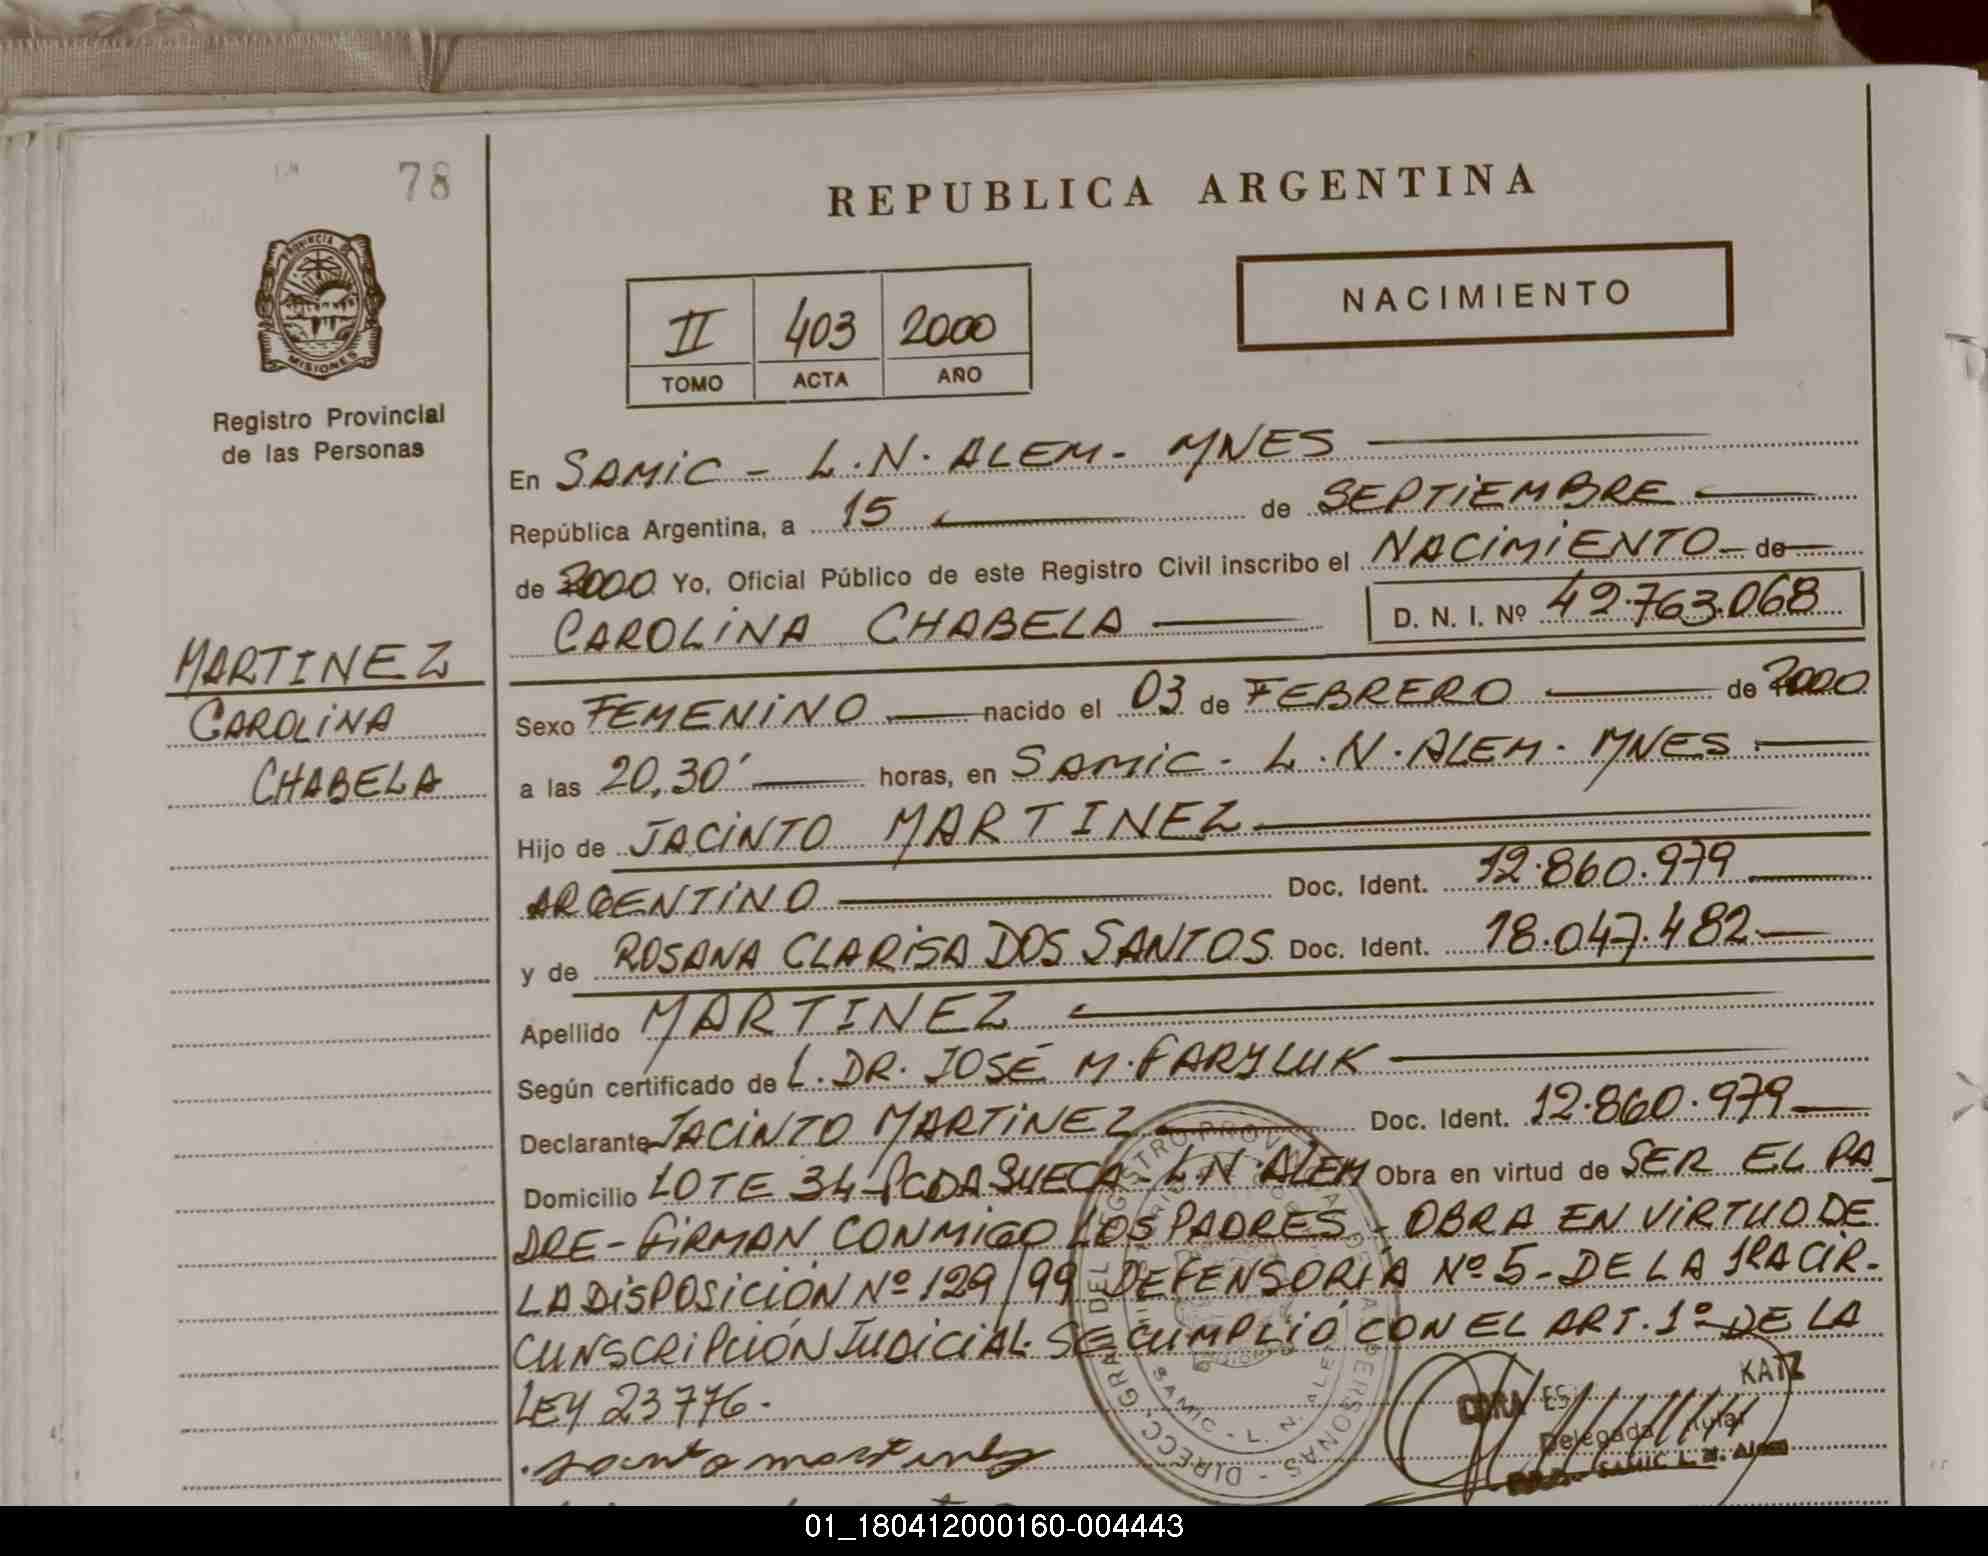 78
REPUBLICA ARGENTINA
PROVINCIA DE
MISIONES
Registro Provincial
de las Personas
NACIMIENTO
II 403 2000
TOMO ACTA AÑO
En SAMIC - L.N. ALEM - MNES
República Argentina, a 15 de SEPTIEMBRE
de 2000 Yo, Oficial Público de este Registro Civil inscribo el NACIMIENTO de
CAROLINA CHABELA D. N. I. Nº 42.763.068
MARTINEZ
CAROLINA
CHABELA
Sexo FEMENINO nacido el 03 de FEBRERO de 2000
a las 20,30' horas, en SAMIC - L.N. ALEM - MNES.
Hijo de JACINTO MARTINEZ
ARGENTINO Doc. Ident. 12.860.979
y de ROSANA CLARISA DOS SANTOS Doc. Ident. 18.047.482
Apellido MARTINEZ
Según certificado de L. DR. JOSÉ M. FARYLUK
Declarante JACINTO MARTINEZ Doc. Ident. 12.860.979
Domicilio LOTE 34 - PCDA SUECA - L.N. ALEM Obra en virtud de SER EL PA-
DRE - FIRMAN CONMIGO LOS PADRES - OBRA EN VIRTUD DE
LA DISPOSICIÓN Nº 129/99 DEFENSORIA Nº 5 - DE LA 1RA CIR-
CUNSCRIPCIÓN JUDICIAL. SE CUMPLIÓ CON EL ART. 1º DE LA
LEY 23776.
KATZ
Delegada Titular
SAMIC L. N. Alem
SAMIC - L. N. ALEM
01_180412000160-004443